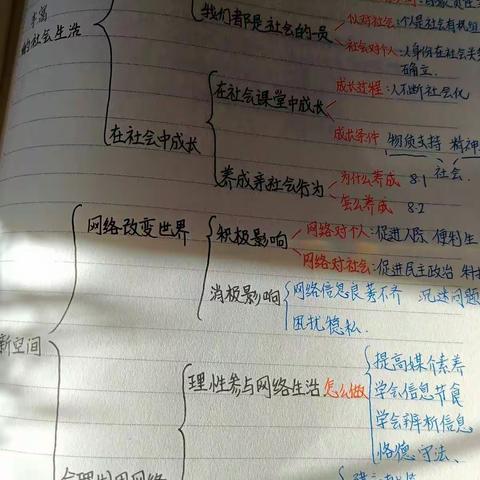 丰富
的社会生活
我们都是社会的一员
个人对社会:个人是社会有机组
社会对个人:人身份在社会关
确立.
在社会中成长
在社会课堂中成长
成长过程:人不断社会化
成长条件 物质支持 精神
社会.
养成亲社会行为
为什么养成 8.1
怎么养成 8.2
网络改变世界
积极影响
网络对个人:促进人际 便利生
网络对社会:促进民主政治 科技
消极影响
网络信息良莠不齐 沉迷问题
困扰 隐私.
新空间
理性参与网络生活 怎么做
提高媒介素养
学会信息节食
学会辨析信息
恪德、守法、
合理利用网络